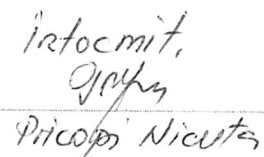 Întocmit,
Pricopi Nicuța